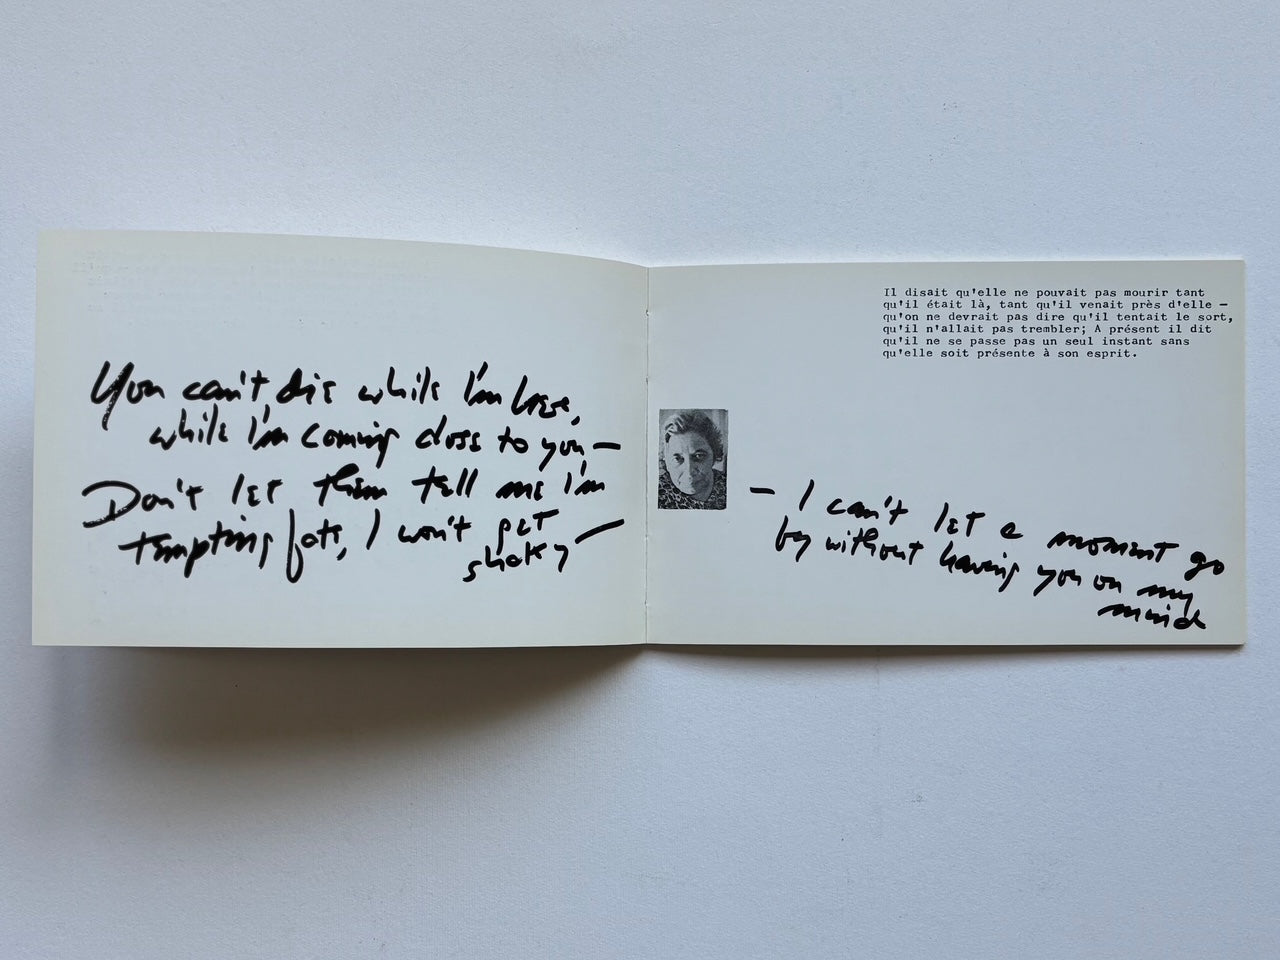 You can't die while I'm here,
while I'm coming close to you —
Don't let them tell me I'm
tempting fate, I won't get
shaky —
Il disait qu'elle ne pouvait pas mourir tant
qu'il était là, tant qu'il venait près d'elle —
qu'on ne devrait pas dire qu'il tentait le sort,
qu'il n'allait pas trembler; A présent il dit
qu'il ne se passe pas un seul instant sans
qu'elle soit présente à son esprit.
— I can't let a moment go
by without having you on my
mind